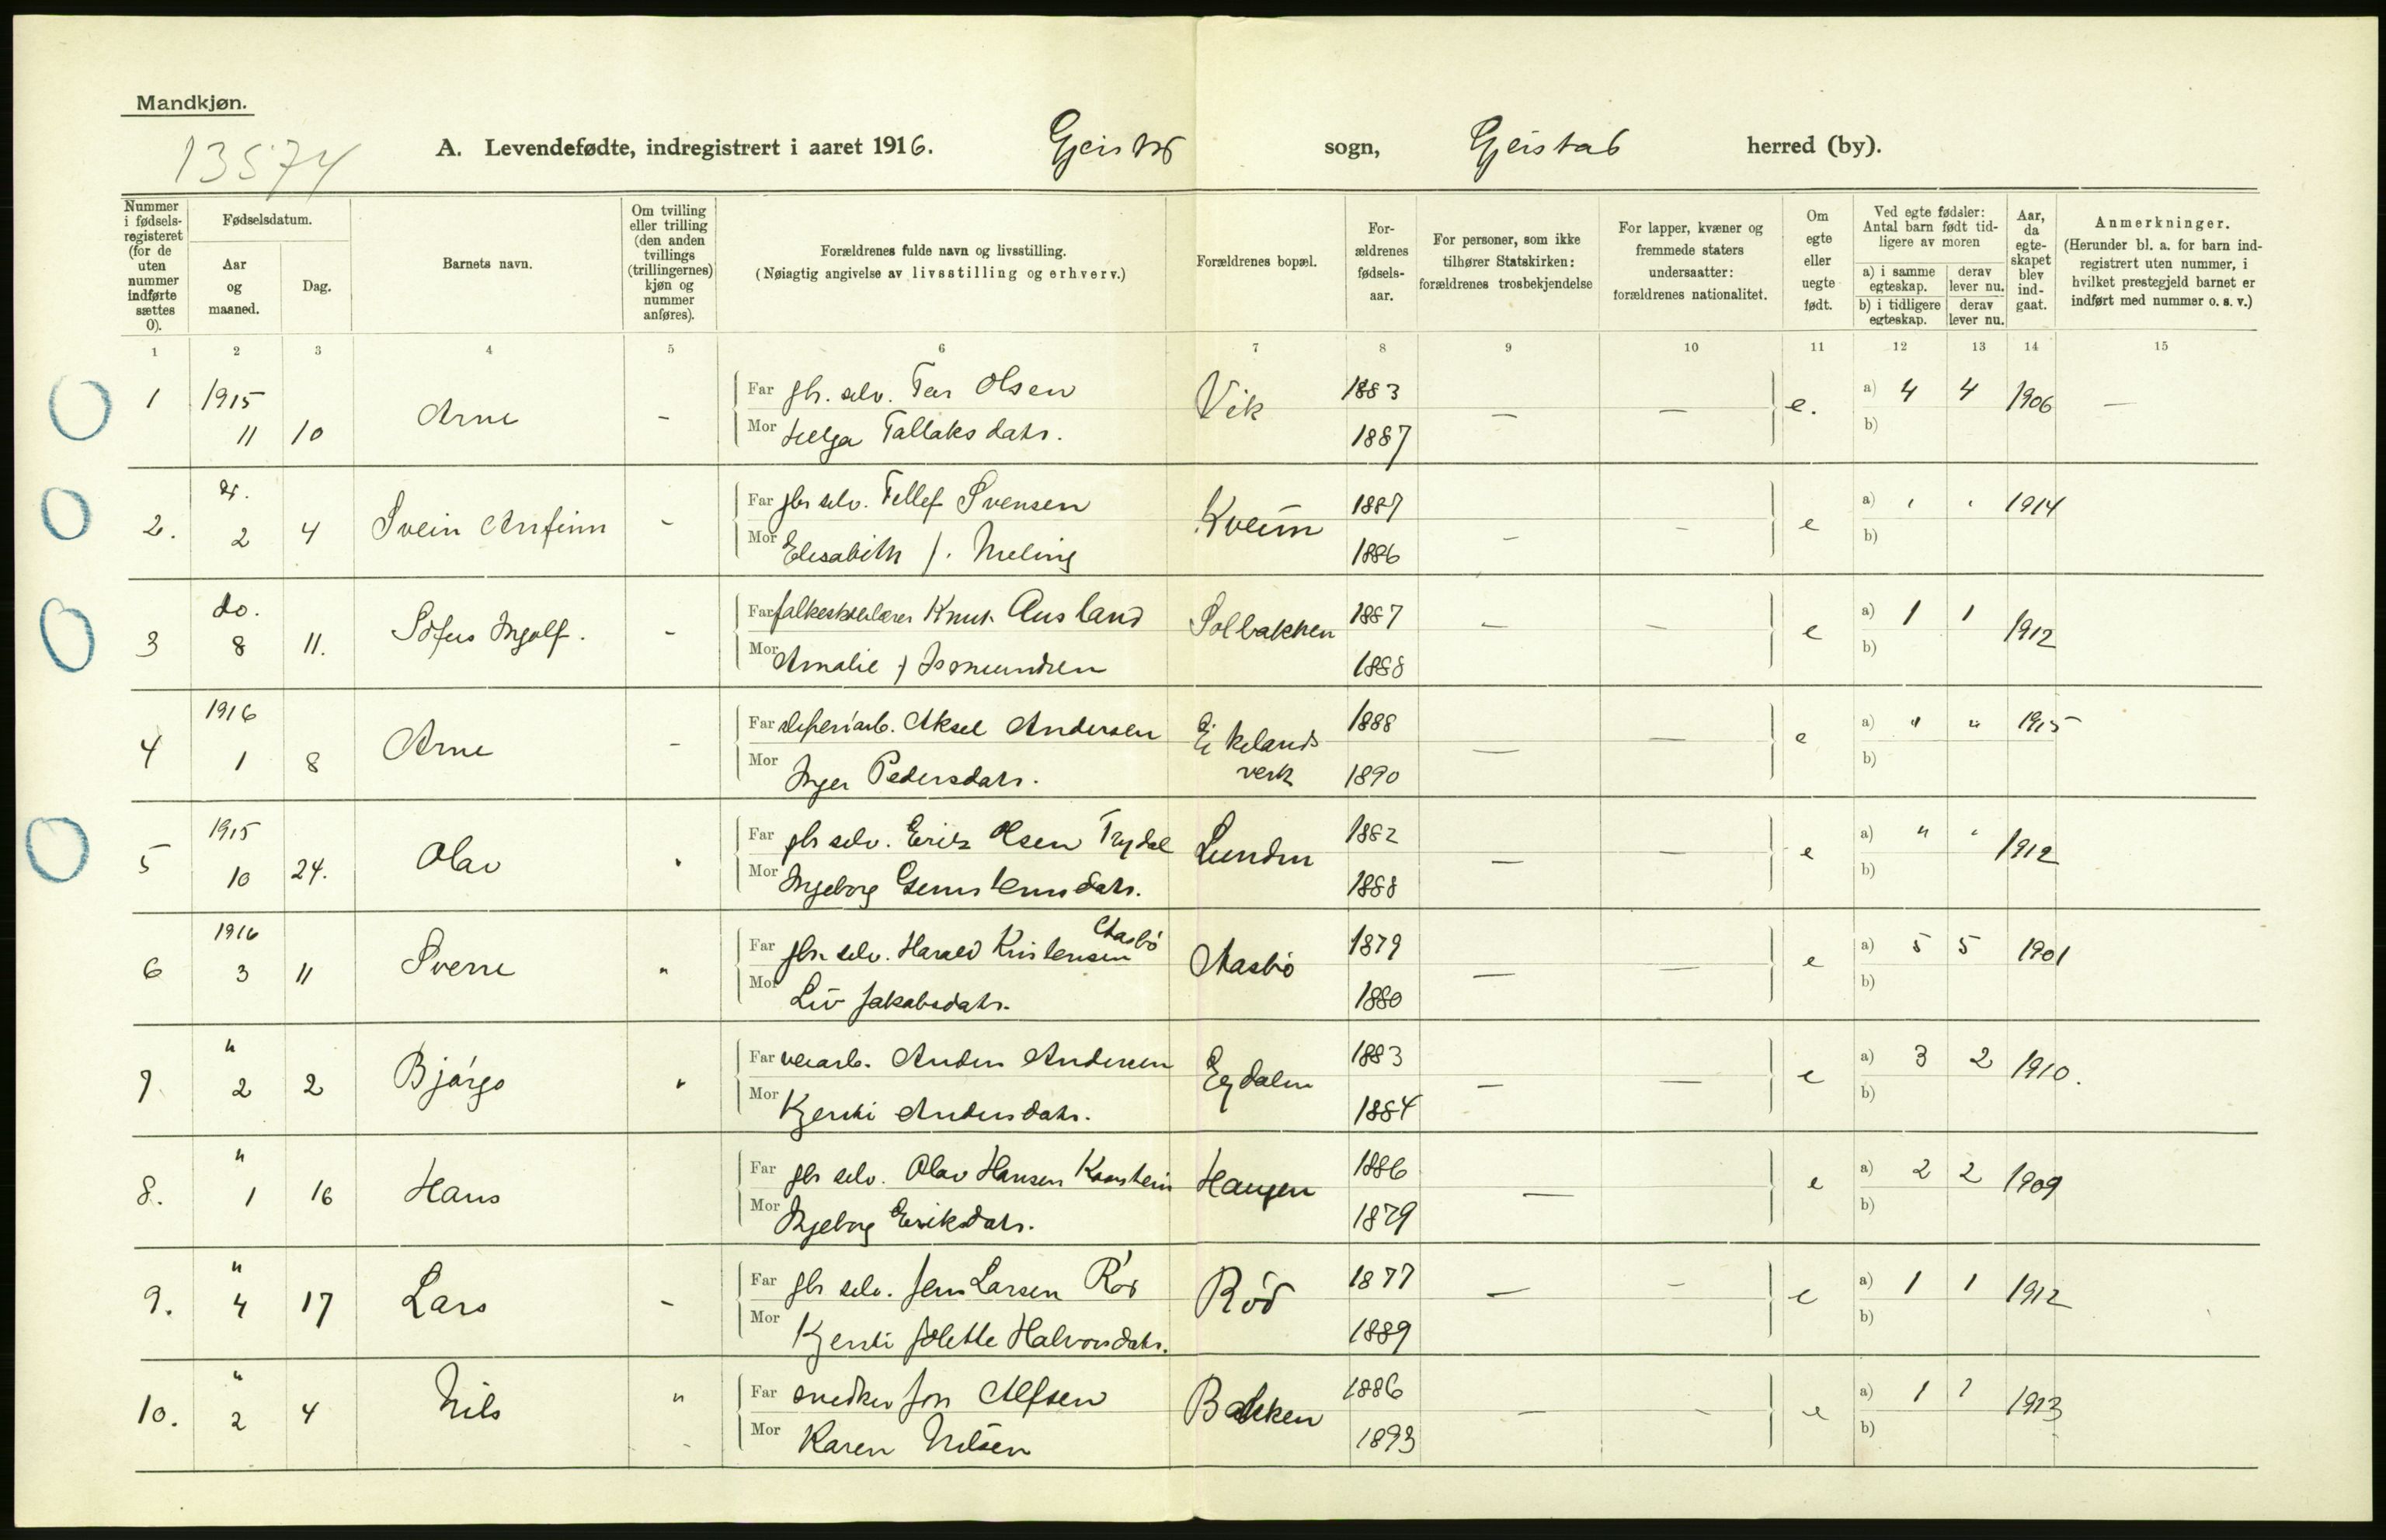 Mandkjøn.
13574
A. Levendefødte, indregistrert i aaret 1916. Gjerstad sogn, Gjerstad herred (by).
Nummer i fødsels-registeret (for de uten nummer indførte sættes 0).
Fødselsdatum.
Aar og maaned.
Dag.
Barnets navn.
Om tvilling eller trilling (den anden tvillings (trillingernes) kjøn og nummer anføres).
Forældrenes fulde navn og livsstilling.
(Nøiagtig angivelse av livsstilling og erhverv.)
Forældrenes bopæl.
For-ældrenes fødsels-aar.
For personer, som ikke tilhører Statskirken: forældrenes trosbekjendelse
For lapper, kvæner og fremmede staters undersaatter: forældrenes nationalitet.
Om egte eller uegte født.
Ved egte fødsler: Antal barn født tid-ligere av moren
a) i samme egteskap.
derav lever nu.
b) i tidligere egteskap.
derav lever nu.
Aar, da egte-skapet blev ind-gaat.
Anmerkninger.
(Herunder bl. a. for barn ind-registrert uten nummer, i hvilket prestegjeld barnet er indført med nummer o. s. v.)
1 2 3 4 5 6 7 8 9 10 11 12 13 14 15
1 1915 11 10 Arne - Far gbr. selv. Tar Olsen Vik 1883 — — e. a) 4 4 1906 —
Mor Helga Tallaksdatr. 1887 b)
2. do. 2 4 Svein Arnfinn - Far gbr selv. Tellef Svensen Kveim 1887 - - e a) " " 1914
Mor Elisabeth f. Meling 1886 b)
3 do. 8 11. Sofus Ingolf. - Far folkeskolelærer Knut Ausland Solbakken 1887 - - e a) 1 1 1912
Mor Amalie f 1888 b)
4 1916 1 8 Arne - Far sliperiarb. Aksel Andersen Eikelands verk 1888 — — e a) " " 1915
Mor Inger Pedersdatr. 1890 b)
5 1915 10 24. Olav " Far gbr selv. Erik Olsen Trydal Lunden 1882 — — e a) " " 1912
Mor Ingeborg 1888 b)
6 1916 3 11 Sverre " Far gbr. selv. Harald Kristensen Aasbö Aasbö 1879 — — e a) 5 5 1901
Mor Liv Jakobsdatr. 1880 b)
7 " 2 2 Bjårgo " Far veiarb. Anders Andersen Egdalen 1883 — — e a) 3 2 1910.
Mor Kjersti Andersdatr. 1884 b)
8. " 1 16 Hans Far gbr selv. Olav Hansen Haugen 1886 — e a) 2 2 1909
Mor Ingeborg Eriksdatr. 1879 b)
9. " 4 17 Lars - Far gbr selv. Jens Larsen Röd Röd 1877 — - e a) 1 1 1912
Mor Kjersti Halvorsdatr. 1889 b)
10. " 2 4 Nils " Far snedker Jon Alfsen Bakken 1886 — - e a) 1 1 1913
Mor Karen Nilsen 1893 b)